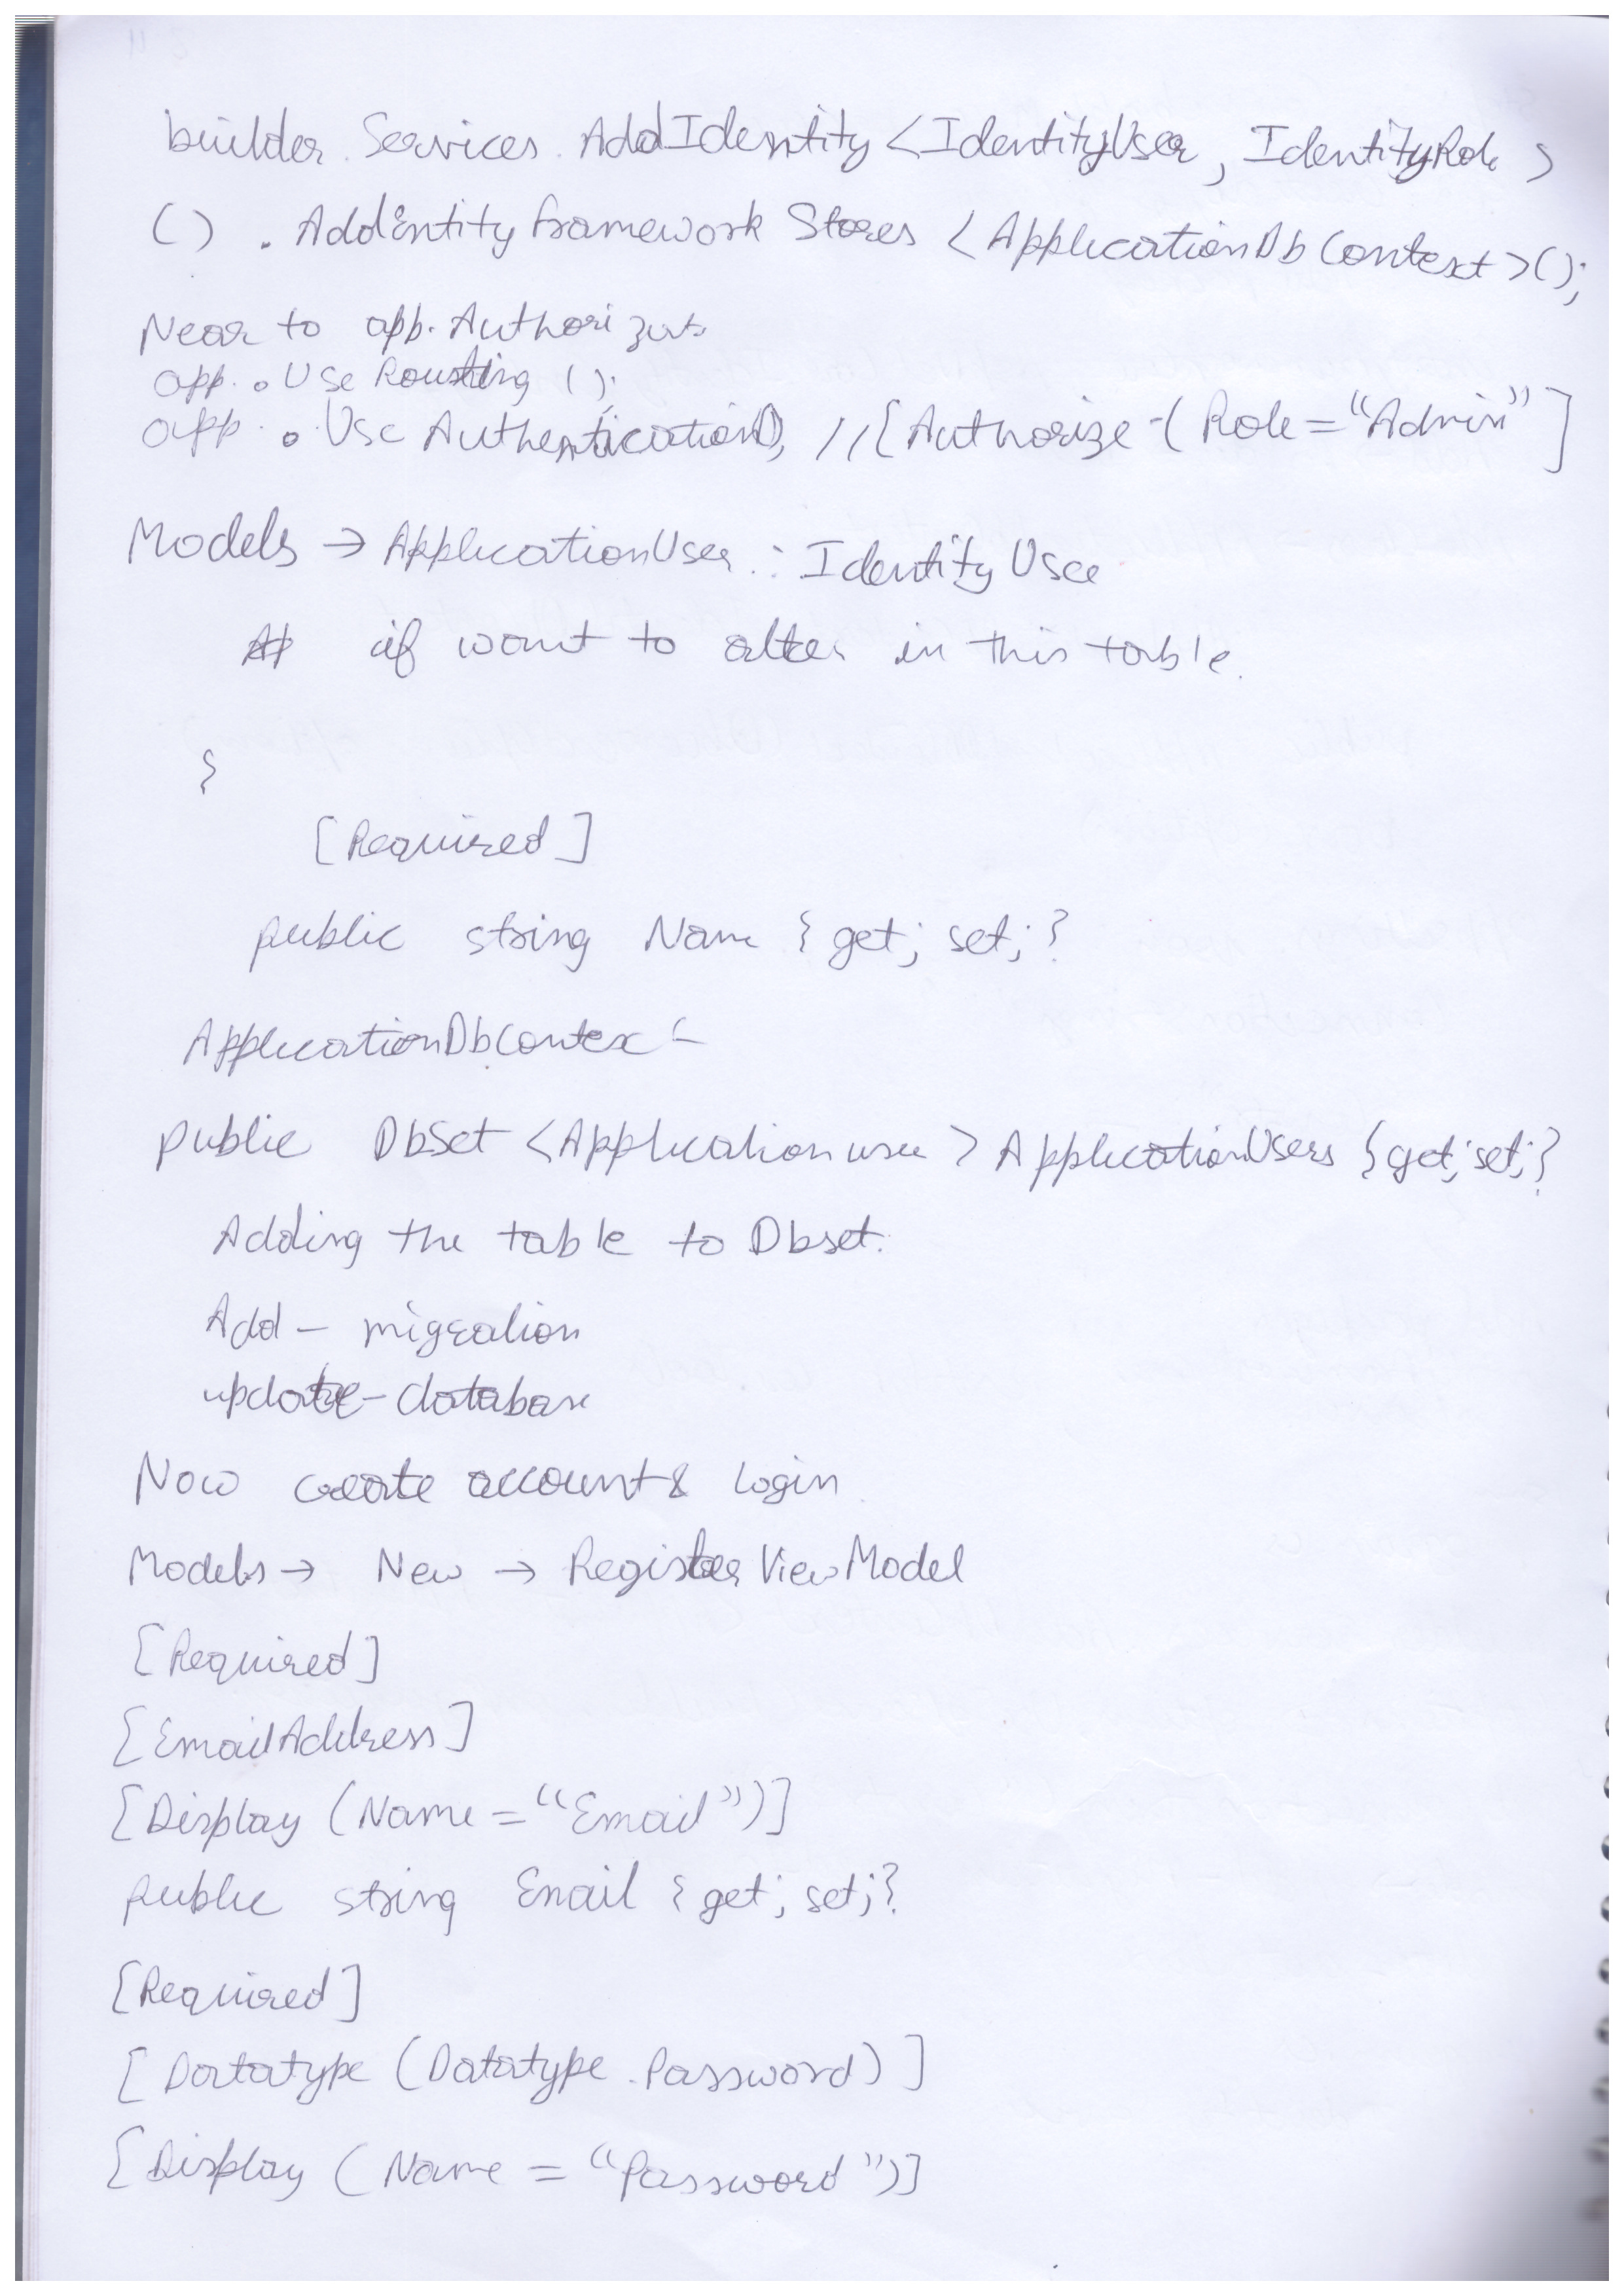 builder.Services.AddIdentity<IdentityUser, IdentityRole>
().AddEntityFrameworkStores<ApplicationDbContext>();
Near to app.Authorizat
app.UseRouting();
app.UseAuthentication(); //[Authorize-(Role="Admin"]
Models → ApplicationUser : IdentityUser
if want to alter in this table.
{
[Required]
public string Name {get; set;}
ApplicationDbContext
public DbSet <Applicationuser> ApplicationUsers {get; set;}
Adding the table to Dbset.
Add-migration
update-database
Now create account & login
Models → New → RegisterViewModel
[Required]
[EmailAddress]
[Display (Name="Email")]
public string Email {get; set;}
[Required]
[Datatype (Datatype.Password)]
[Display (Name = "Password")]